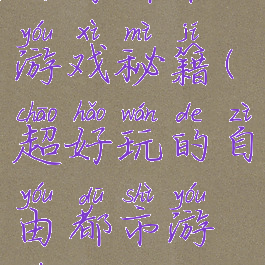 yóu xì mì jí
游戏秘籍(
chāo hǎo wán de zì
超好玩的自
yóu dū shì yóu
由都市游